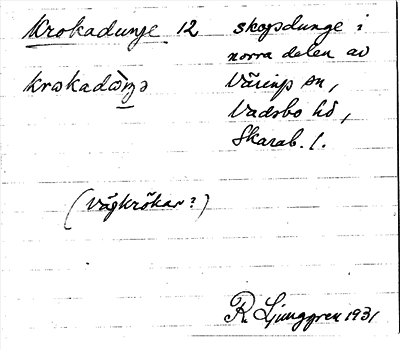 Krokadunge 12 skogsdunge i
norra delen av
krokadẁŋə Väring sn,
Vadsbo hd,
Skarab. l.
(vägkrökar?)
R. Ljunggren 1931